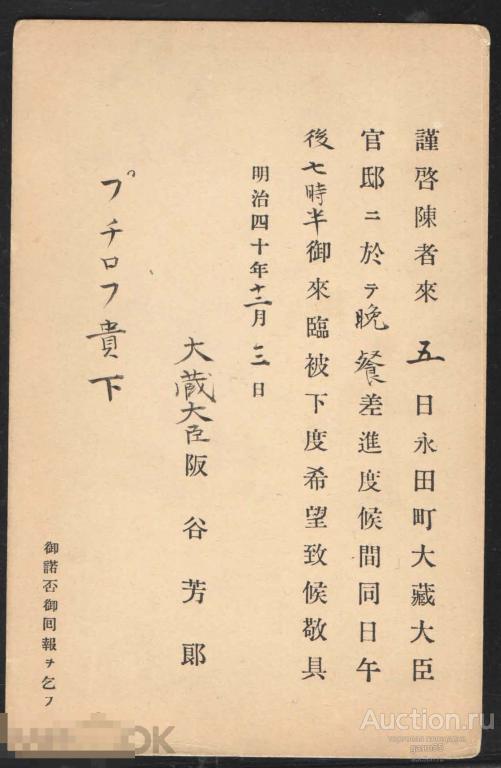 謹啓陳者來五日永田町大藏大臣
官邸ニ於テ晩餐差進度候間同日午
後七時半御來臨被下度希望致候敬具
明治四十年十二月三日
大蔵大臣阪谷芳郎
プチロフ貴下
御諾否御回報ヲ乞フ
Auction.ru
торговая площадка
OK